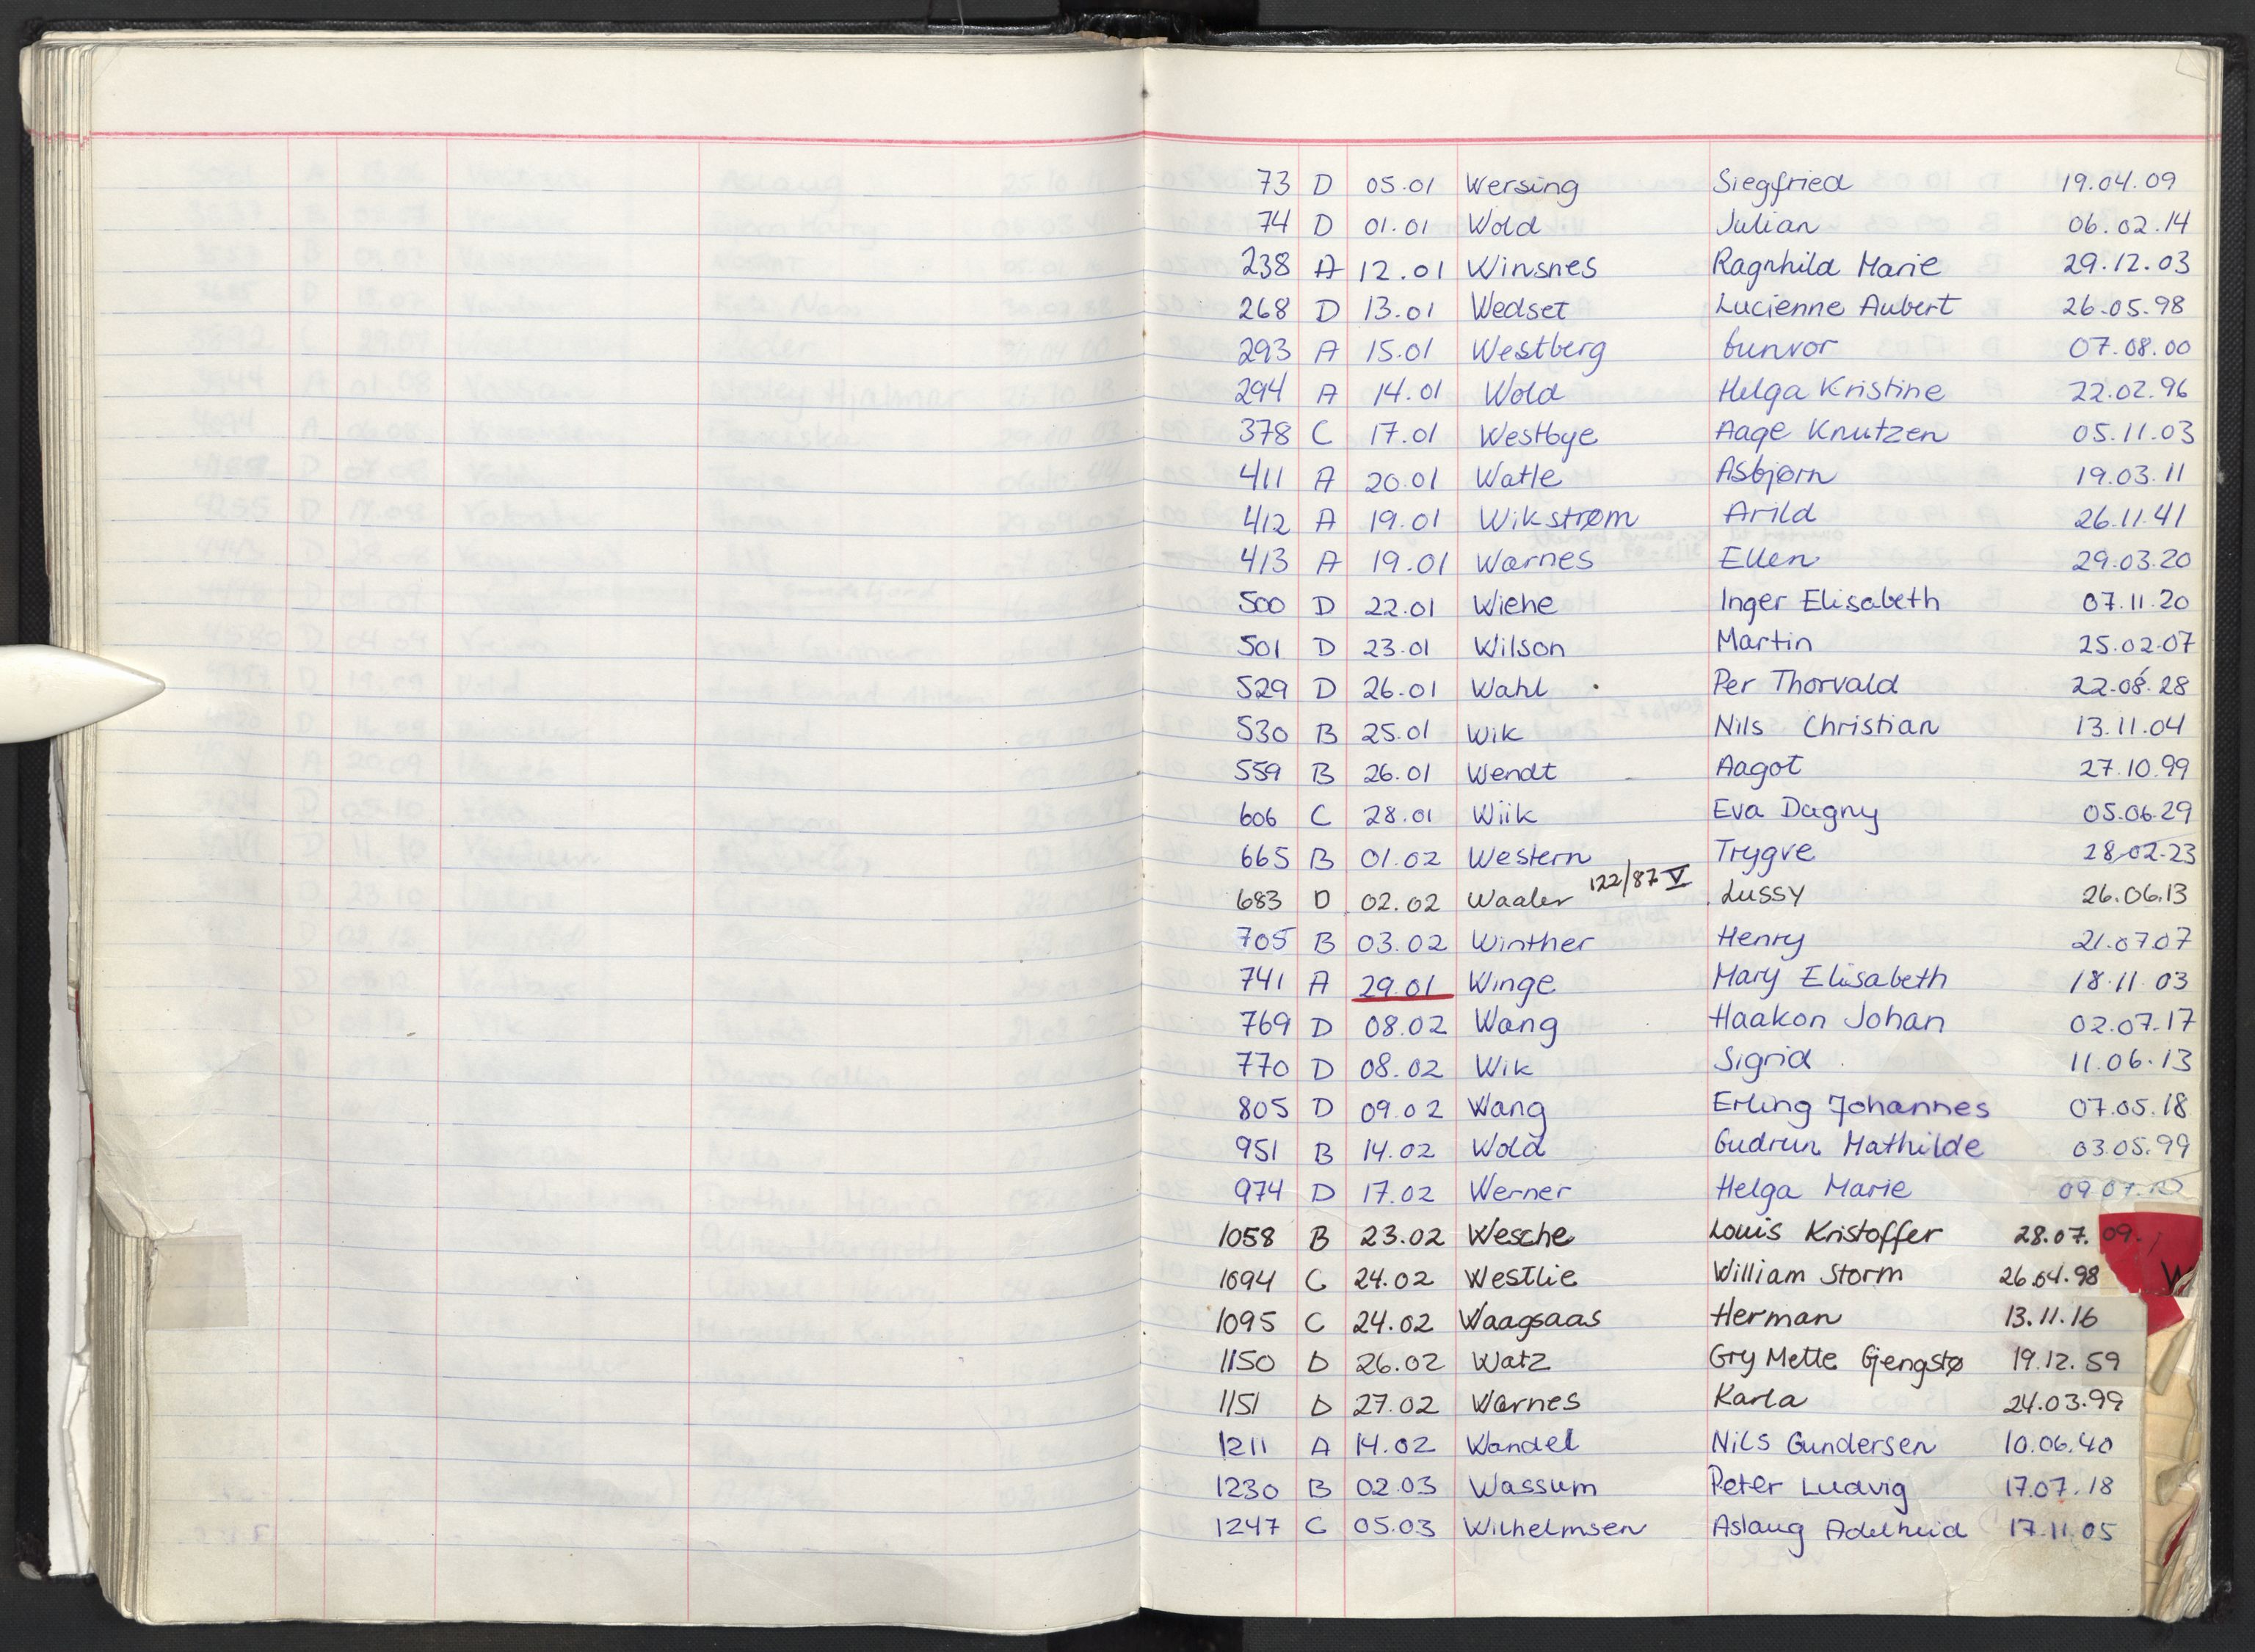 73 D 05.01 Wersing Siegfried 19.04.09
74 D 01.01 Wold Julian 06.02.14
238 A 12.01 Winsnes Ragnhild Marie 29.12.03
268 D 13.01 Wedset Lucienne Aubert 26.05.98
293 A 15.01 Westberg Gunvor 07.08.00
294 A 14.01 Wold Helga Kristine 22.02.96
378 C 17.01 Westbye Aage Knutzen 05.11.03
411 A 20.01 Watle Asbjørn 19.03.11
412 A 19.01 Wikstrøm Arild 26.11.41
413 A 19.01 Warnes Ellen 29.03.20
500 D 22.01 Wiehe Inger Elisabeth 07.11.20
501 D 23.01 Wilson Martin 25.02.07
529 D 26.01 Wahl Per Thorvald 22.08.28
530 B 25.01 Wik Nils Christian 13.11.04
559 B 26.01 Wendt Aagot 27.10.99
606 C 28.01 Wiik Eva Dagny 05.06.29
665 B 01.02 Western Trygve 28.02.23
683 D 02.02 Waaler 122/87 V Lussy 26.06.13
705 B 03.02 Winther Henry 21.07.07
741 A 29.01 Winge Mary Elisabeth 18.11.03
769 D 08.02 Wang Haakon Johan 02.07.17
770 D 08.02 Wik Sigrid 11.06.13
805 D 09.02 Wang Erling Johannes 07.05.18
951 B 14.02 Wold Gudrun Mathilde 03.05.99
974 D 17.02 Werner Helga Marie
1058 B 23.02 Wesche Louis Kristoffer 28.07.09
1094 C 24.02 Westlie William Storm 26.04.98 W
1095 C 24.02 Waagsaas Herman 13.11.16
1150 D 26.02 Watz Gry Mette Gjengstø 19.12.59
1151 D 27.02 Warnes Karla 24.03.99
1211 A 14.02 Wandel Nils Gundersen 10.06.40
1230 B 02.03 Wassum Peter Ludvig 17.07.18
1247 C 05.03 Wilhelmsen Aslaug Adelheid 17.11.05